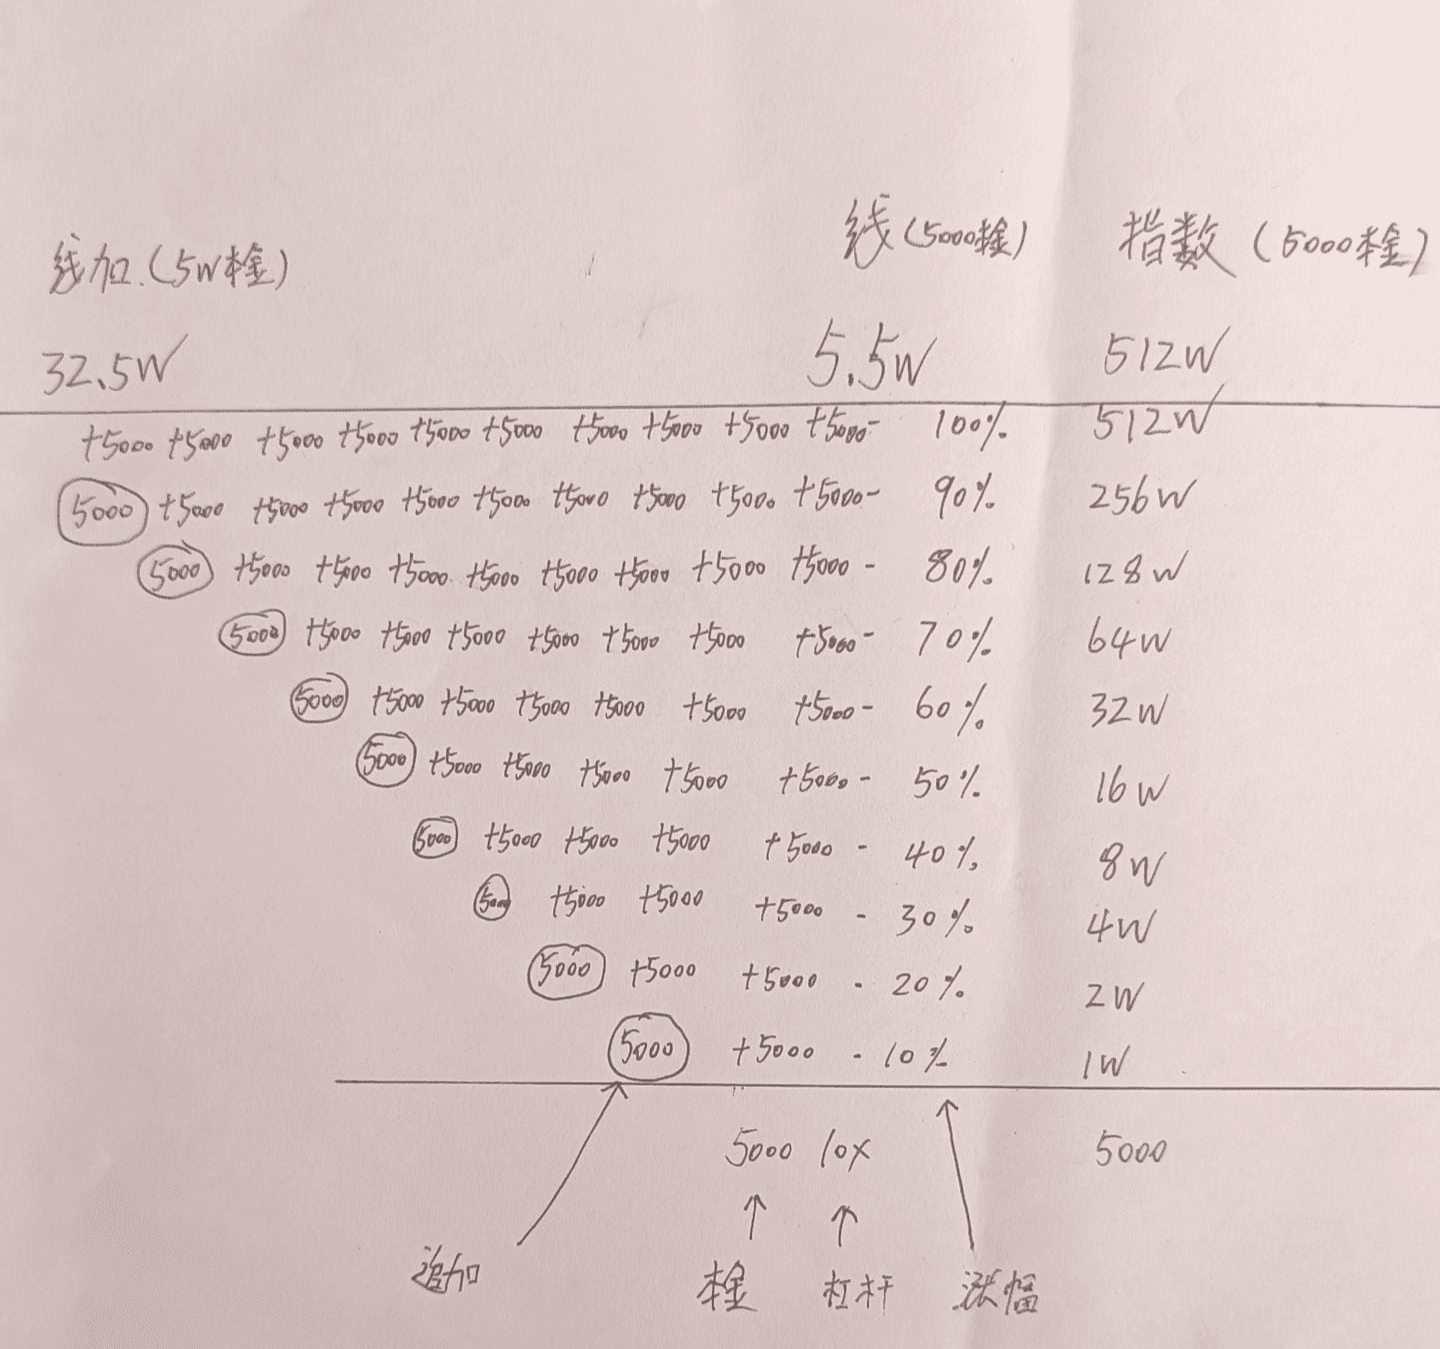 线加.(5W本金) 线(5000本金) 指数(5000本金)
32.5W 5.5W 512W
+5000 +5000 +5000 +5000 +5000 +5000 +5000 +5000 +5000 +5000- 100% 512W
5000 +5000 +5000 +5000 +5000 +5000 +5000 +5000 +5000 +5000- 90% 256W
5000 +5000 +5000 +5000 +5000 +5000 +5000 +5000 +5000- 80% 128W
5000 +5000 +5000 +5000 +5000 +5000 +5000 +5000- 70% 64W
5000 +5000 +5000 +5000 +5000 +5000 +5000- 60% 32W
5000 +5000 +5000 +5000 +5000 +5000- 50% 16W
5000 +5000 +5000 +5000 +5000- 40% 8W
5000 +5000 +5000 +5000- 30% 4W
5000 +5000 +5000- 20% 2W
5000 +5000- 10% 1W
5000 10x 5000
追加 本金 杠杆 涨幅